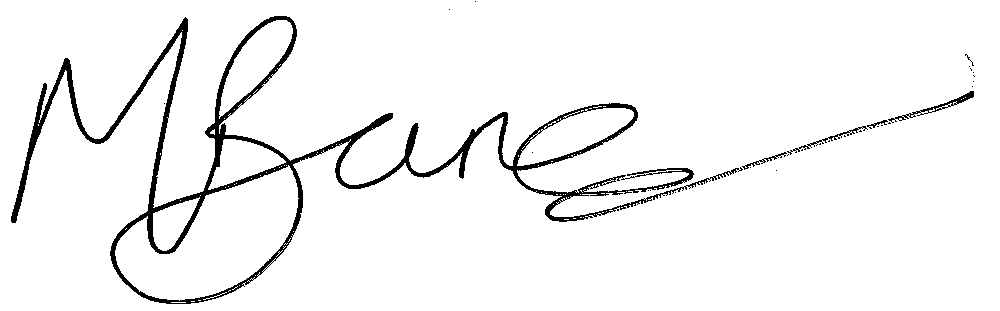 M Barnes